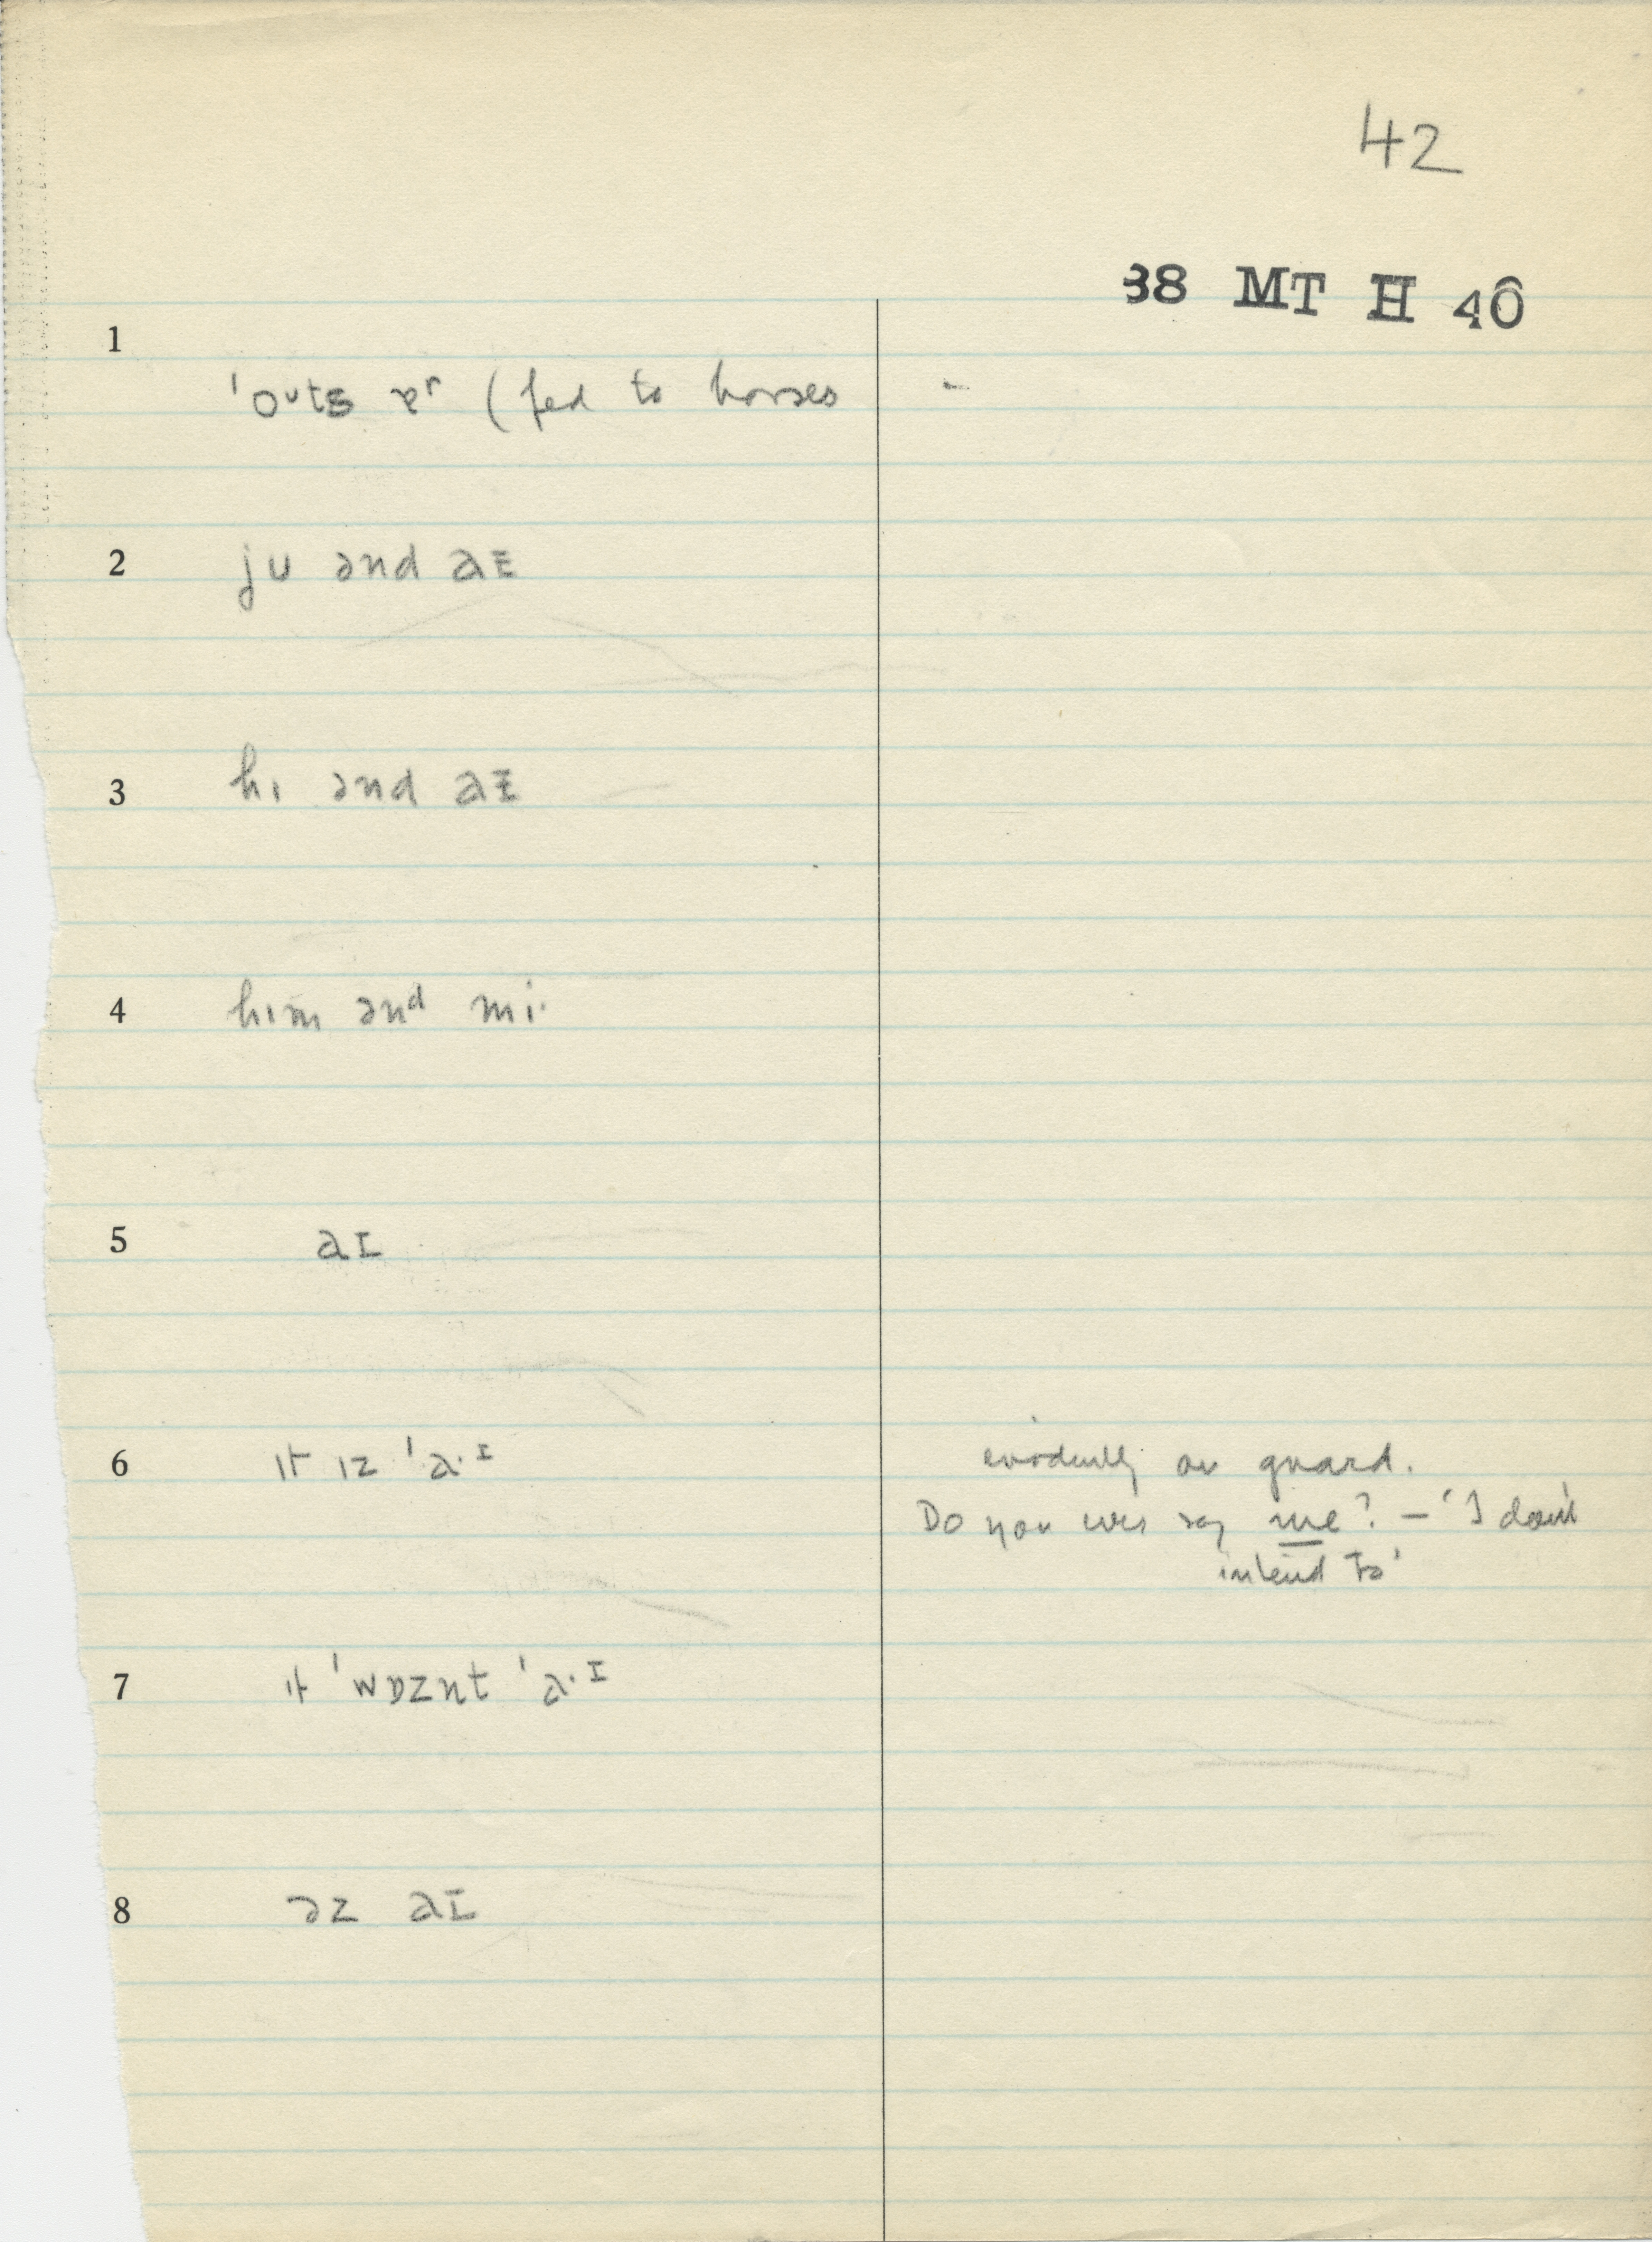 42
38 MT H 40
1
ˈoᵘts ɐʳ (fed to horses
2 ju ənd aɪ
3 hɪ ənd aɪ
4 hɪm ənᵈ mi·
5 aɪ
6 ɪt ɪz ˈa·ᶦ evidently on guard.
Do you ever say me? – 'I don't
intend to'
7 ɪt ˈwɒznt ˈa·ᶦ
8 əz aɪ